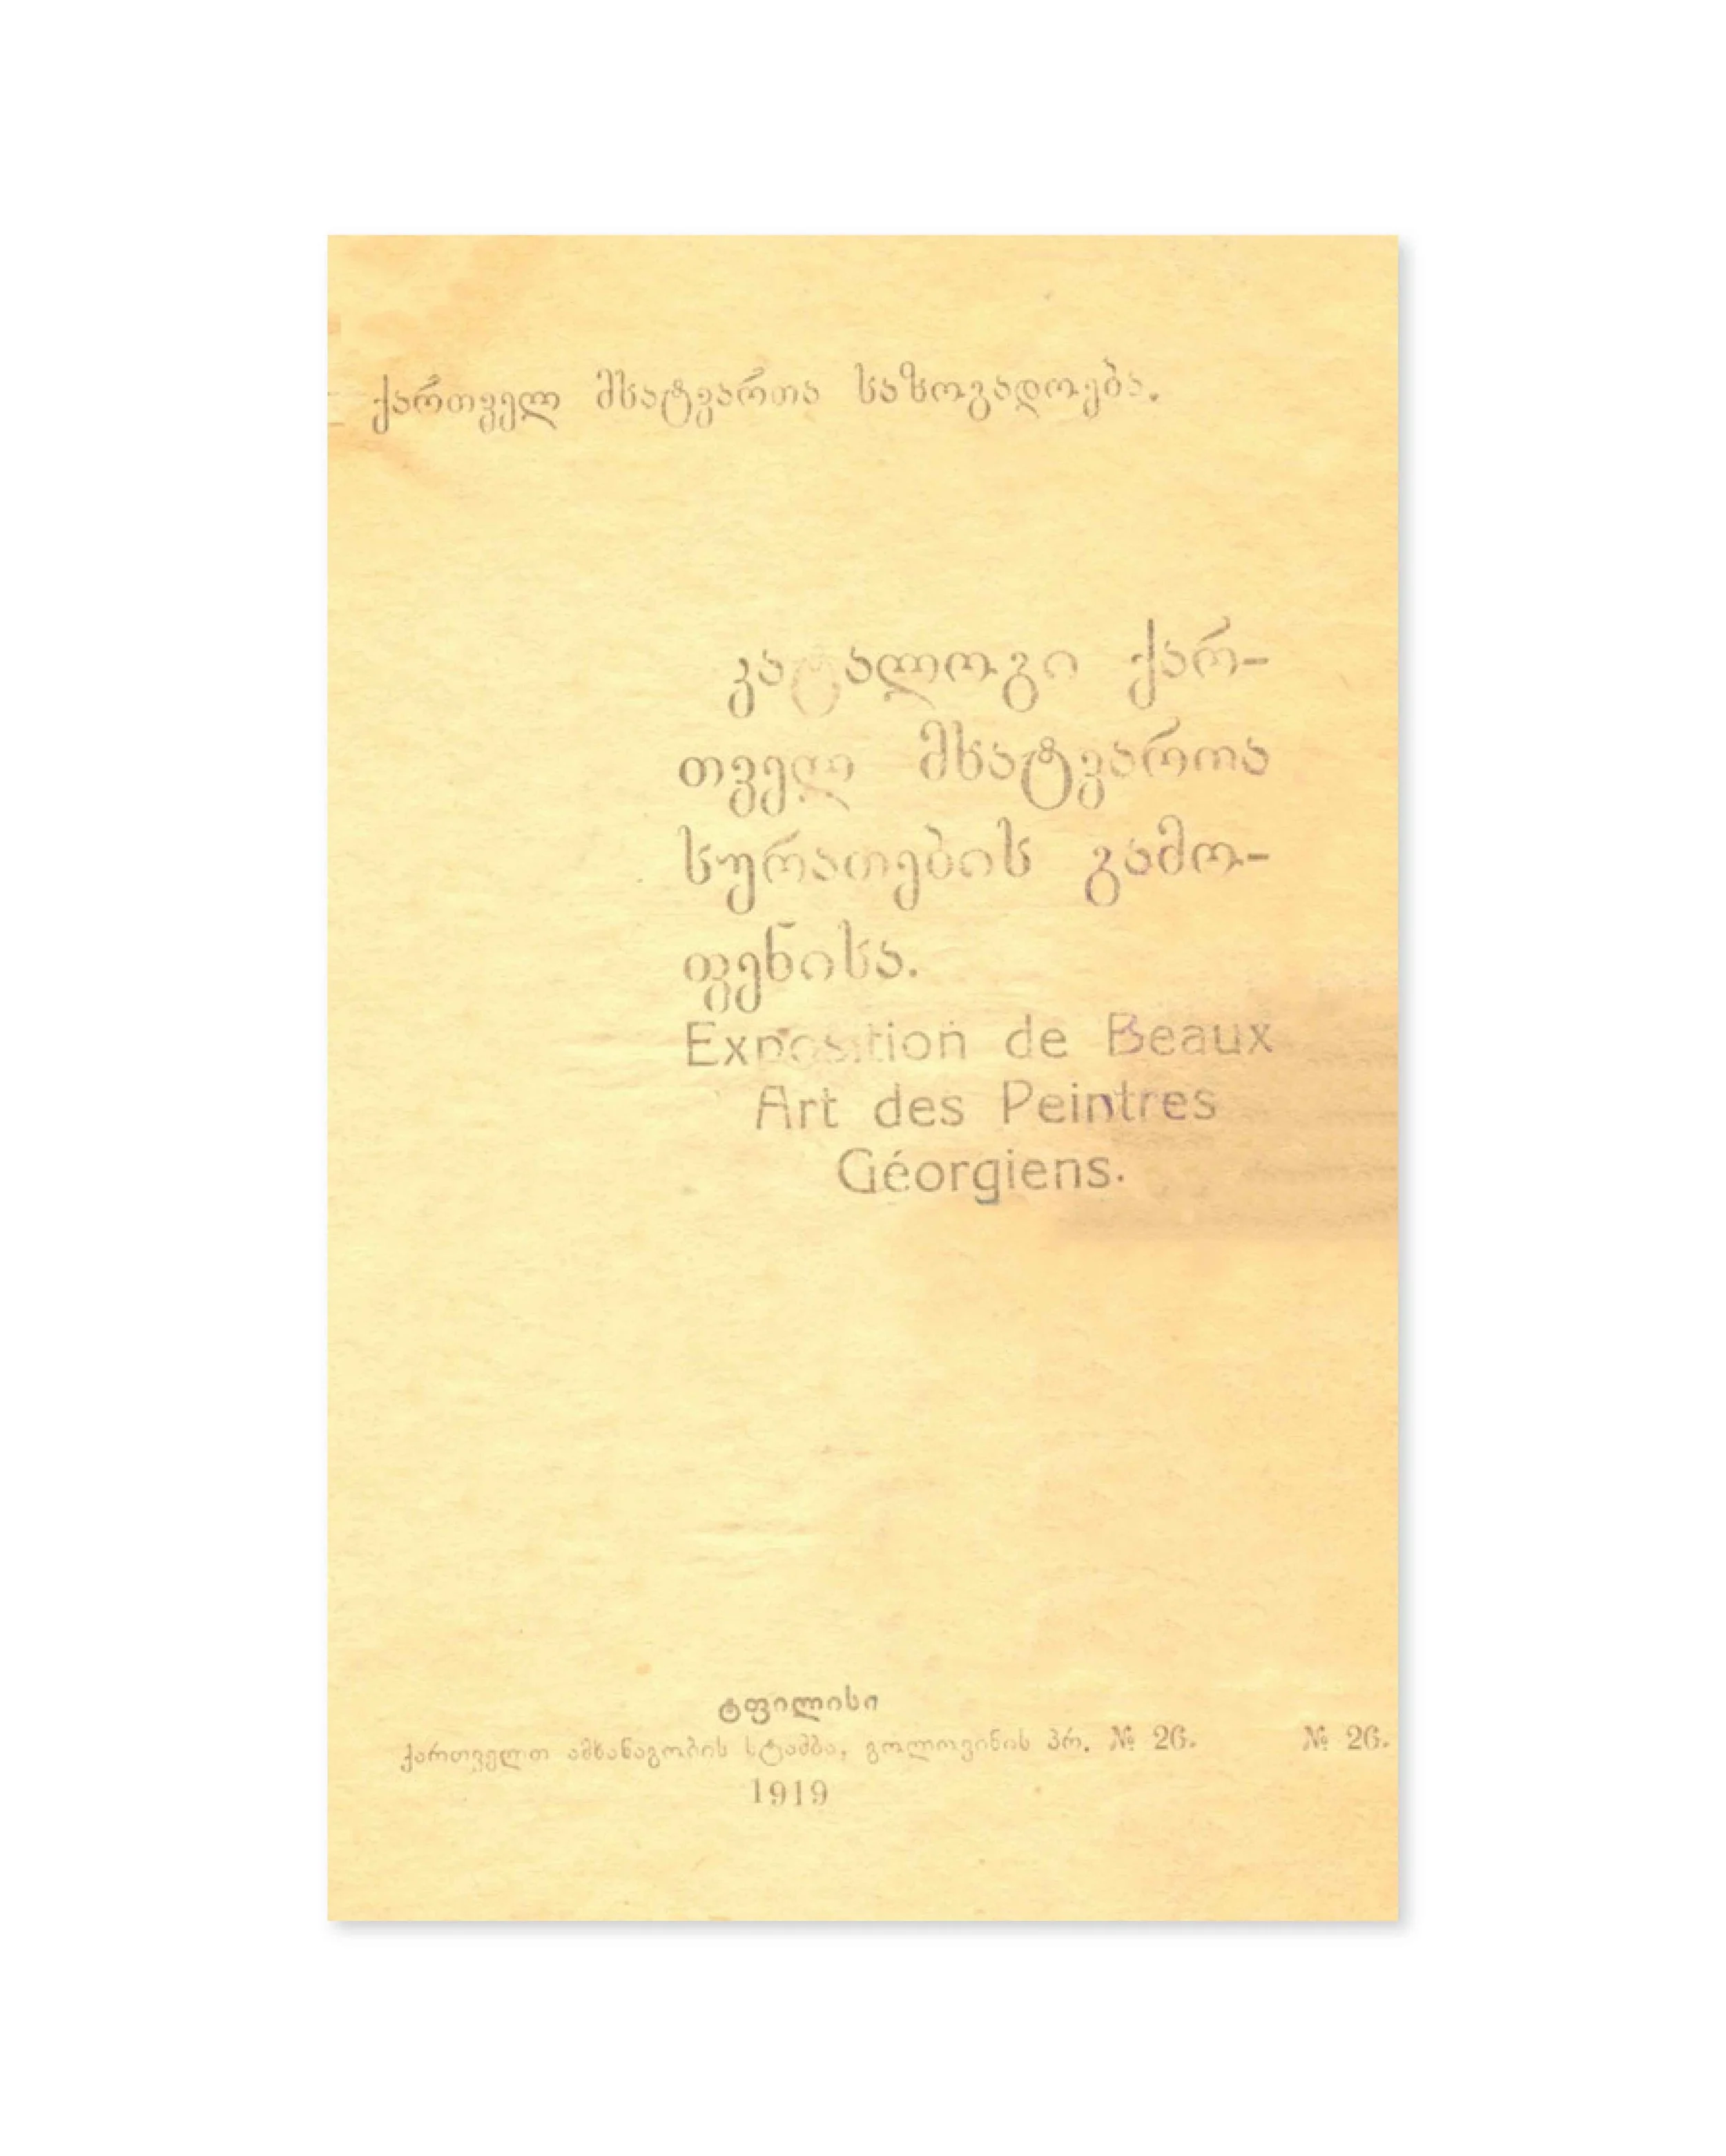 ქართველ მხატვართა საზოგადოება.
კატალოგი ქარ-
თველ მხატვართა
სურათების გამო-
ფენისა.
Exposition de Beaux
Art des Peintres
Géorgiens.
ტფილისი
ქართველთ ამხანაგობის სტამბა, გოლოვინის პრ. № 26. № 26.
1919